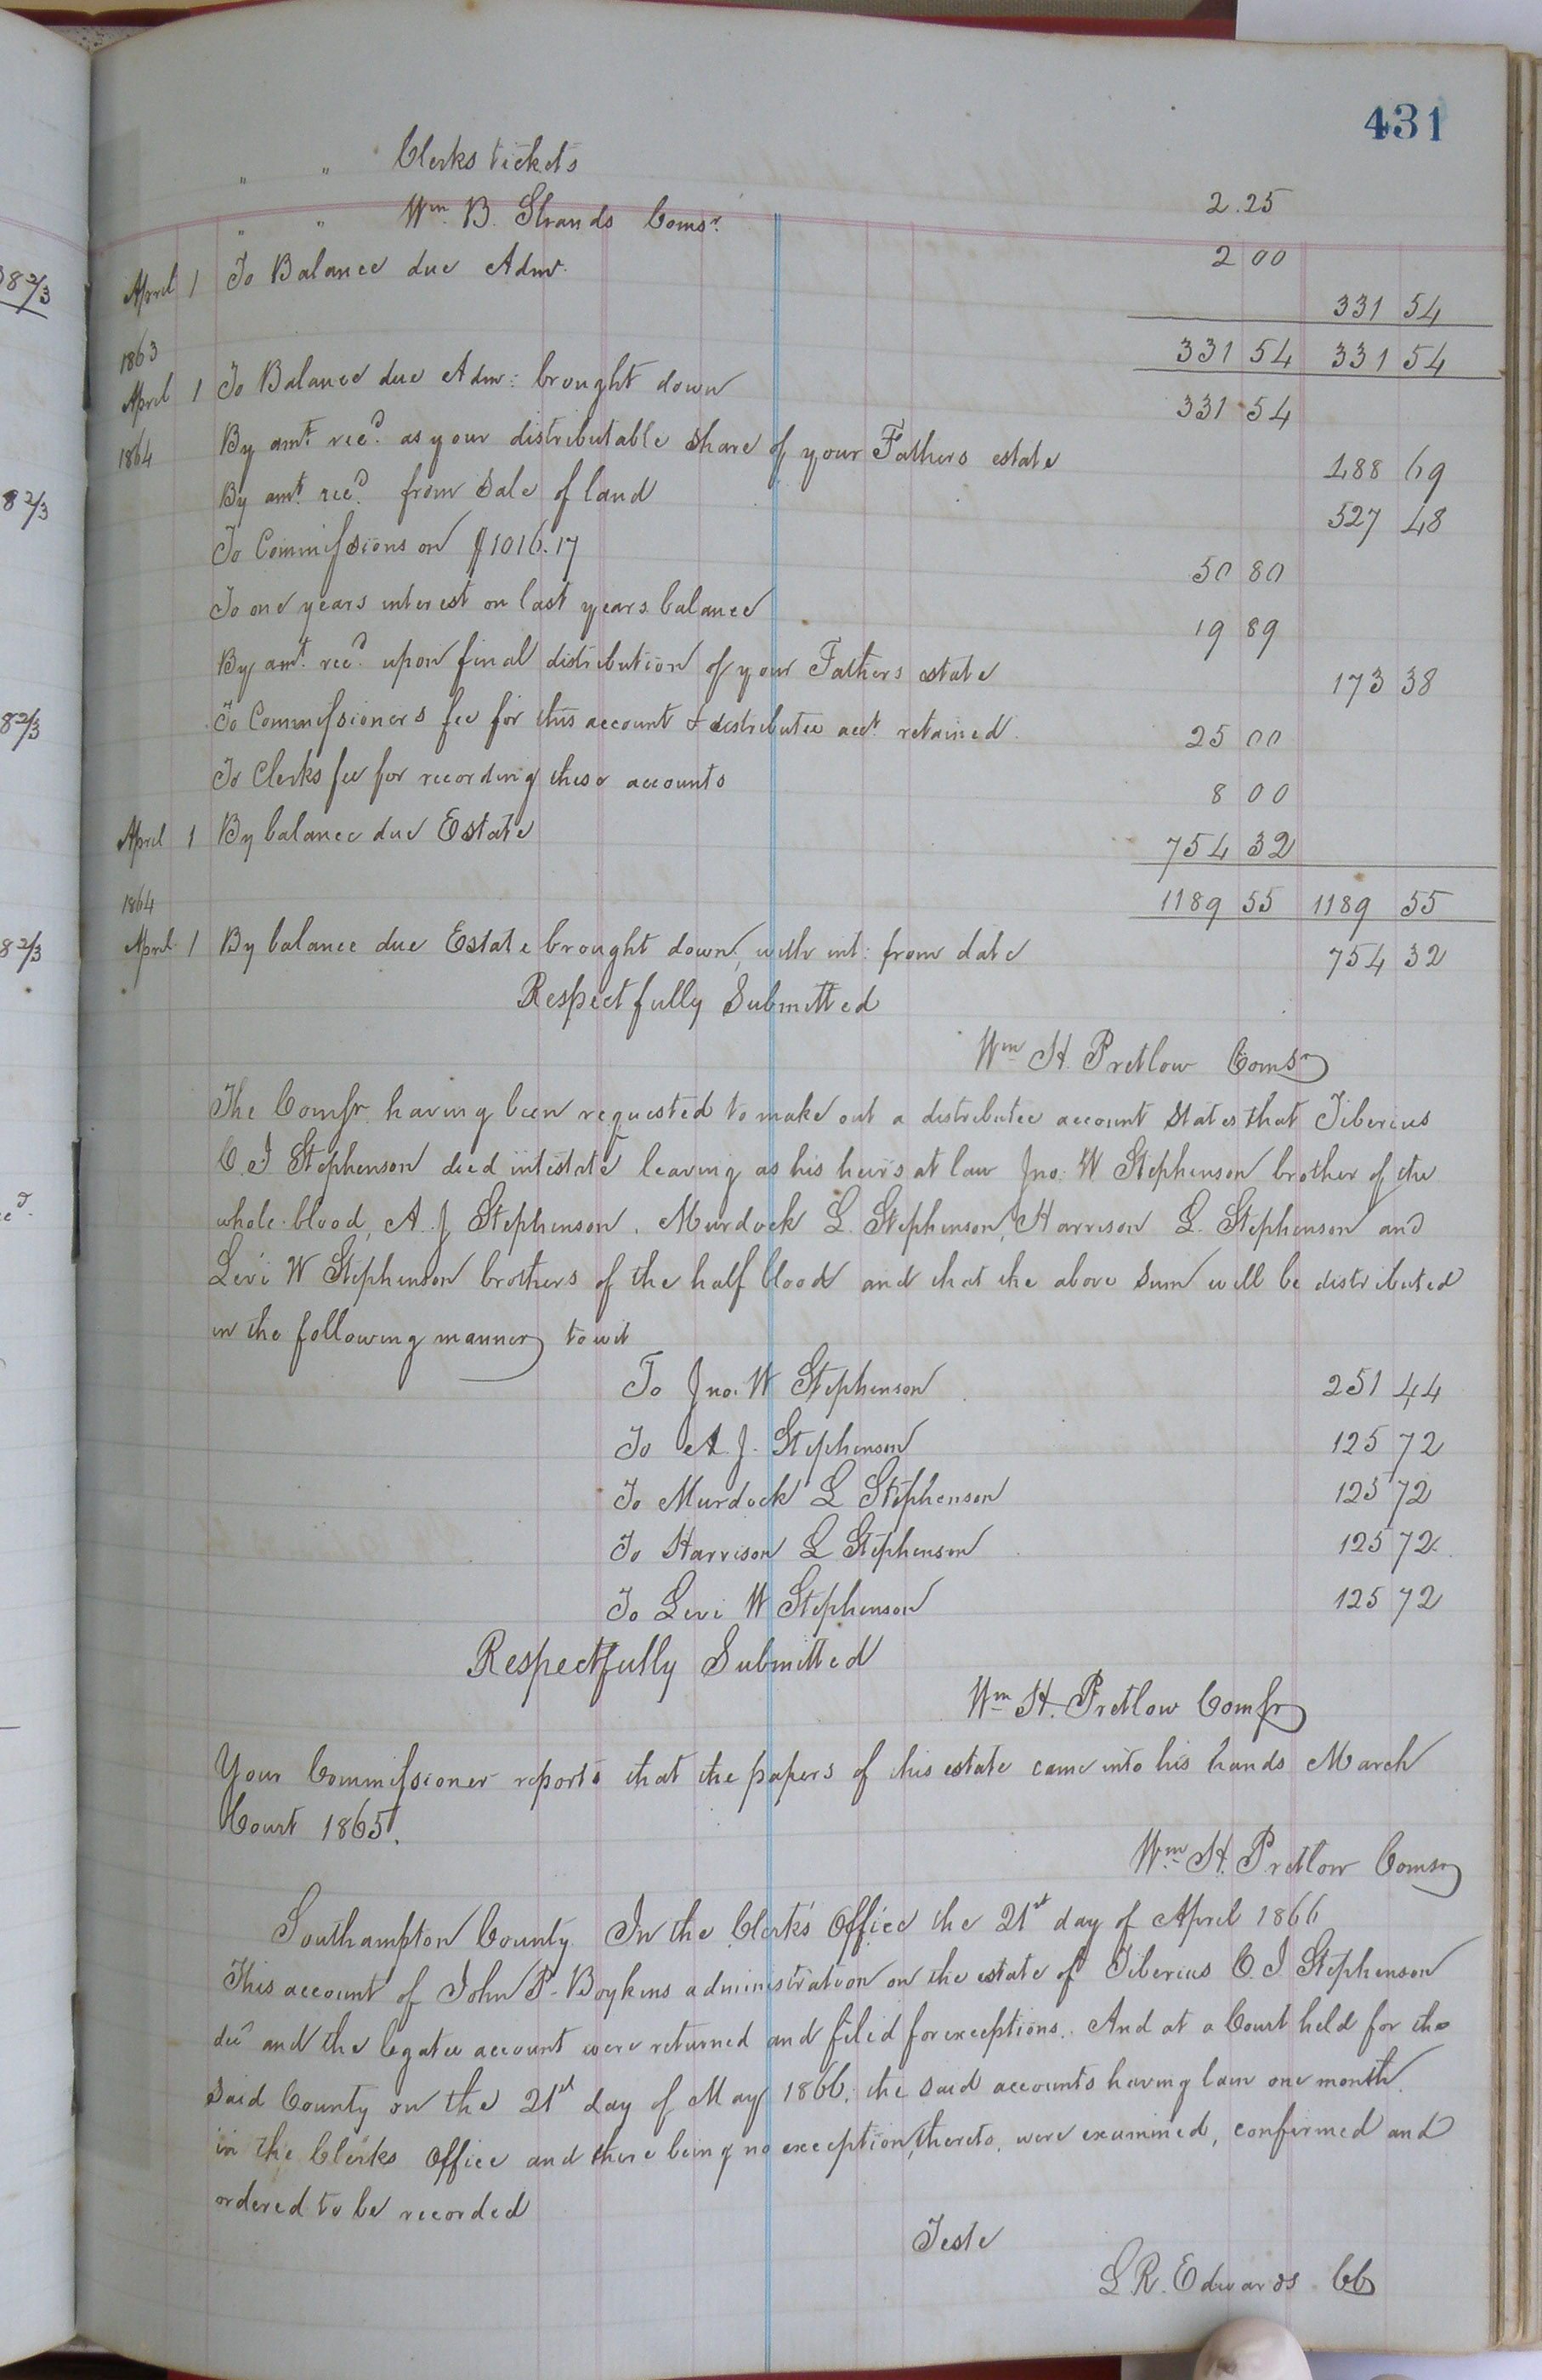 431
" " Clerks tickets 2.25
" " Wm B. Shands Comsr. 2 00
April 1 To Balance due Admr. 331 54
331 54 331 54
1863
April 1 To Balance due Admr: brought down 331 54
1864 By amt. recd. as your distributable share of your Fathers estate 488 69
By amt. recd. from Sale of land 527 48
To Commissions on $1016.17 50 80
To one years interest on last years balance 19 89
By amt. recd. upon final distribution of your Fathers estate 173 38
To Commissioners fee for this account & distributee acct. retained 25 00
To Clerks fee for recording these accounts 8 00
April 1 By balance due Estate 754 32
1189 55 1189 55
1864
April 1 By balance due Estate brought down, with int: from date 754 32
Respectfully Submitted
Wm H. Pretlow Comsr
The Comsr. having been requested to make out a distributee account States that Tiberius
C. I. Stephenson died intestate leaving as his heirs at law Jno. W Stephenson brother of the
whole blood, A. J Stephenson, Murdock L. Stephenson, Harrison L. Stephenson and
Levi W Stephenson brothers of the half blood and that the above Sum will be distributed
in the following manner to wit
To Jno. W Stephenson 251 44
To A. J. Stephenson 125 72
To Murdock L Stephenson 125 72
To Harrison L Stephenson 125 72
To Levi W Stephenson 125 72
Respectfully Submitted
Wm H. Pretlow Comsr
Your Commissioner reports that the papers of this estate came into his hands March
Court 1865.
Wm. H. Pretlow Comsr
Southampton County In the Clerk's Office the 21st day of April 1866
This account of John P. Boykins administration on the estate of Tiberius C. I Stephenson
decd and the legatee account were returned and filed for exceptions. And at a Court held for the
Said County on the 21st day of May 1866, the said accounts having lain one month
in the Clerks Office and there being no exception thereto, were examined, confirmed and
ordered to be recorded
Teste
L. R. Edwards CC
82/3
82/3
82/3
82/3